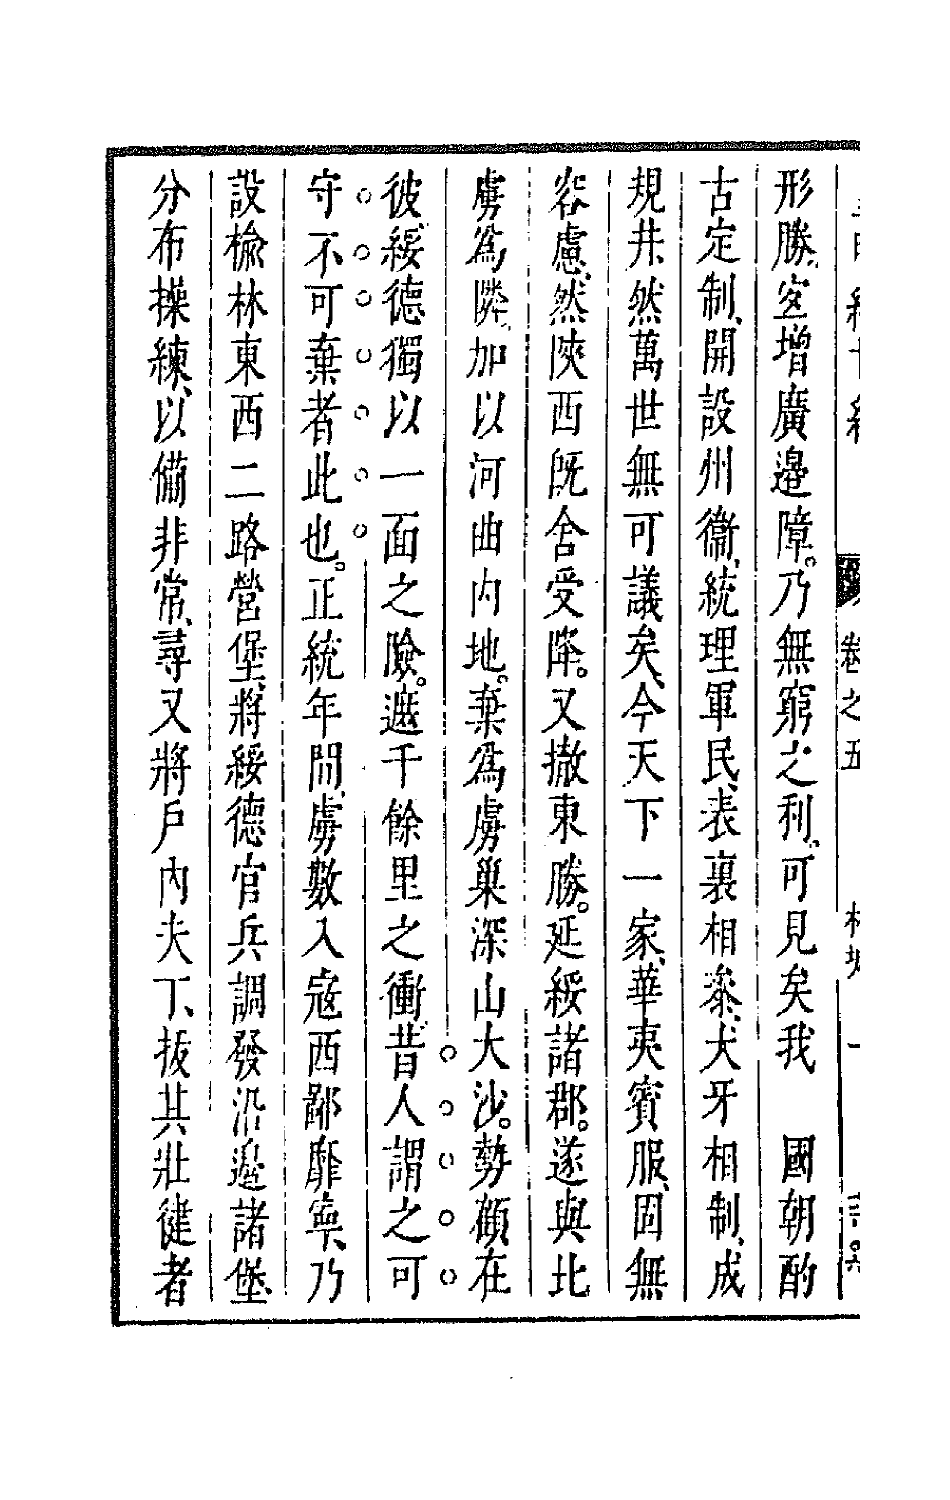 形勝、寔增廣邊障。乃無窮之利。可見矣我　國朝酌
古定制、開設州衞、統理軍民、表裏相叅、犬牙相制、成
規井然萬世無可議矣、今天下一家、華夷賓服、固無
容慮、然陝西旣舍受降。又撤東勝。延綏諸郡。遂與北
虜爲隣、加以河曲內地。棄爲虜巢深山大沙。勢顧在
彼、綏德獨以一面之險。遮千餘里之衝、昔人謂之可
守不可棄者此也。正統年間、虜數入寇西鄙靡寧、乃
設榆林東西二路營堡、將綏德官兵調發沿邊諸堡、
分布操練、以備非常、尋又將戶內夫丁、拔其壯健者
卷之五